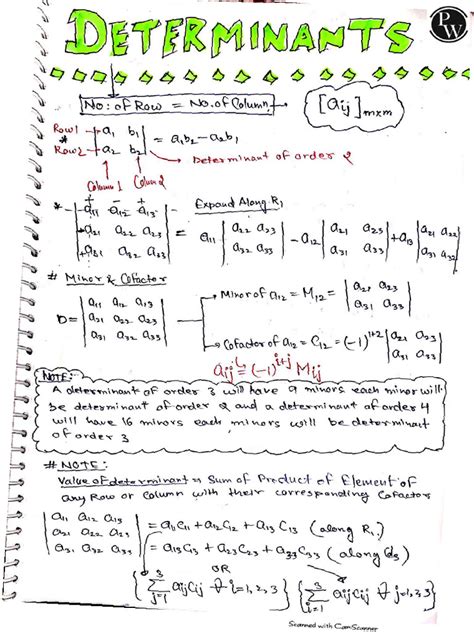 DETERMINANTS
PW
No. of Row = No. of Column
[aij] m×m
Row1 → | a₁ b₁ |
Row2 → | a₂ b₂ | = a₁b₂ - a₂b₁
Determinant of order 2
Column 1 Column 2
+ - +
Expand Along R₁
| a₁₁ a₁₂ a₁₃ |
| a₂₁ a₂₂ a₂₃ | = a₁₁ | a₂₂ a₂₃ | - a₁₂ | a₂₁ a₂₃ | + a₁₃ | a₂₁ a₂₂ |
| a₃₁ a₃₂ a₃₃ | | a₃₂ a₃₃ | | a₃₁ a₃₃ | | a₃₁ a₃₂ |
# Minor & Cofactor
D = | a₁₁ a₁₂ a₁₃ |
| a₂₁ a₂₂ a₂₃ |
| a₃₁ a₃₂ a₃₃ |
→ Minor of a₁₂ = M₁₂ = | a₂₁ a₂₃ |
| a₃₁ a₃₃ |
→ Cofactor of a₁₂ = C₁₂ = (-1)¹⁺² | a₂₁ a₂₃ |
| a₃₁ a₃₃ |
= (-1)^(i+j) Mij
NOTE:
A determinant of order 3 will have 9 minors each minor will
be determinant of order 2 and a determinant of order 4
will have 16 minors each minors will be determinant
of order 3
# NOTE:
Value of determinant = Sum of Product of Element of
any Row or column with their corresponding Cofactors
| a₁₁ a₁₂ a₁₃ |
| a₂₁ a₂₂ a₂₃ |
| a₃₁ a₃₂ a₃₃ |
= a₁₁C₁₁ + a₁₂C₁₂ + a₁₃C₁₃ (along R₁)
= a₁₃C₁₃ + a₂₃C₂₃ + a₃₃C₃₃ (along C₃)
OR
{ ∑ j=1 3 aij Cij ∀ i=1,2,3 } { ∑ i=1 3 aij Cij ∀ j=1,2,3 }
Scanned with CamScanner